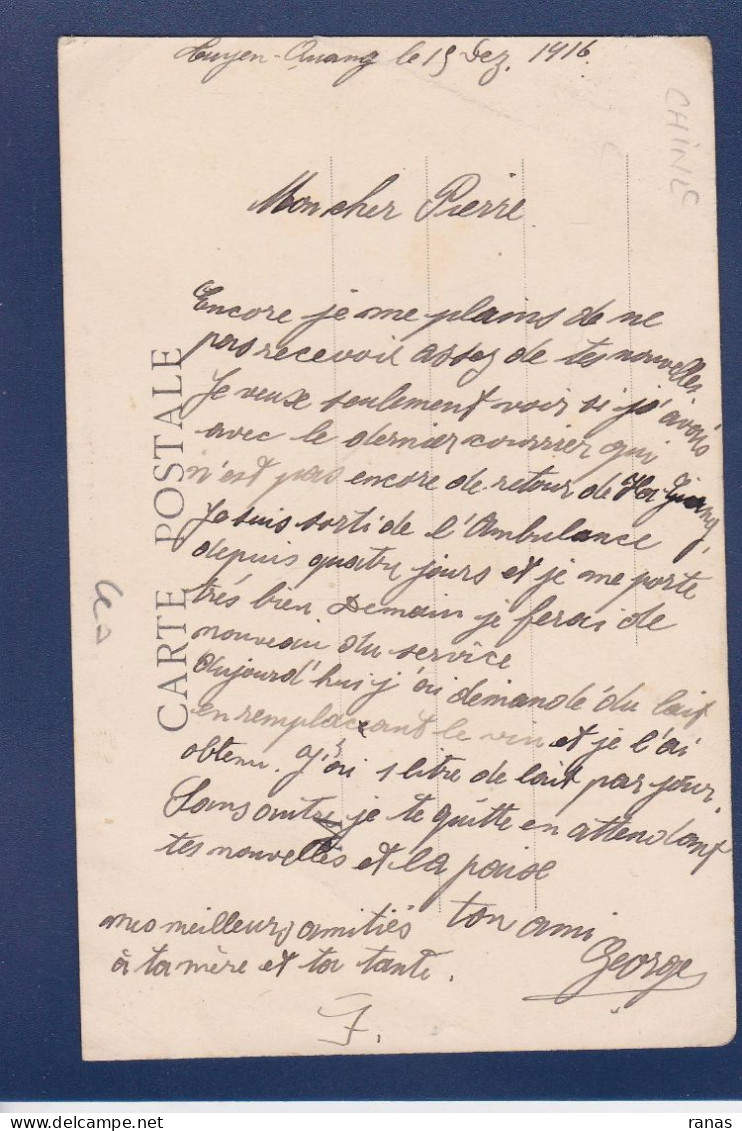 Tuyen-Quang le 15 Dez. 1916
CHINE
Mon cher Pierre
Encore je me plains de ne
pas recevoir assez de tes nouvelles.
Je veux seulement voir si j'avais
avec le dernier courrier qui
n'est pas encore de retour de Ha Giang,
Je suis sorti de l'Ambulance
depuis quatre jours et je me porte
très bien Demain je ferai de
nouveau du service
Aujourd'hui j'ai demandé du lait
en remplacant le vin et je l'ai
obtenu. J'ai 1 litre de lait par jour.
Sans autre je te quitte en attendant
tes nouvelles et la paise
ton ami
George
mes meilleurs amitiés
à ta mère et ta tante.
CARTE POSTALE
ranas